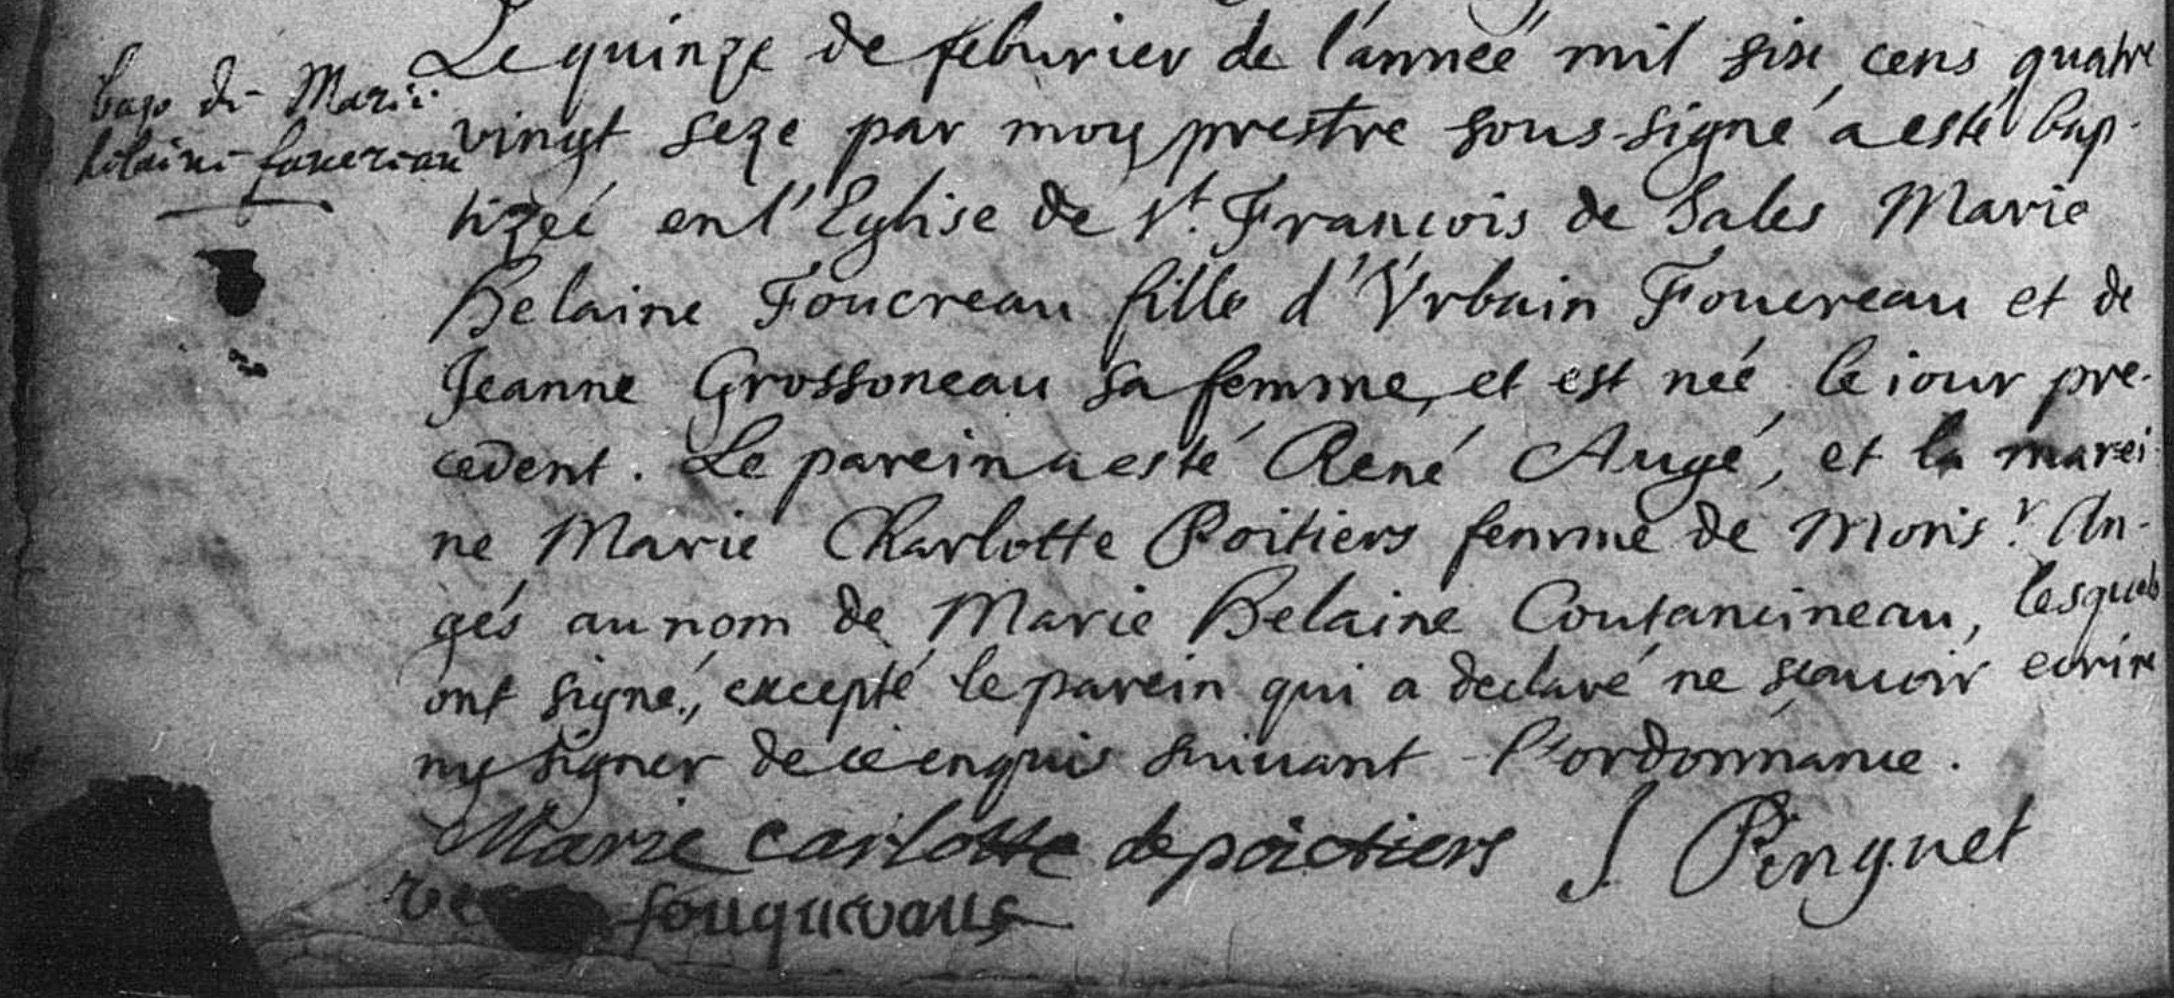 bap de Marie
helaine foucreau
Le quinze de feburier de l'année mil six cens quatre
vingt seze par moy prestre sous-signé a esté bap-
tizeé en l'Eglise de St. Francois de Sales Marie
Helaine Foucreau fille d'Vrbain Foucreau et de
Jeanne Grossoneau sa femme, et est neé le iour pre-
cedent. Le parein a esté René Augé, et la marei-
ne Marie Charlotte Poitiers femme de Monsr. An-
gés au nom de Marie Helaine Coutancineau, lesquels
ont signé, excepté le parein qui a declaré ne scauoir ecrire
ny signer de ce enquis suiuant l'ordonnance.
Marie carlotte de poictiers J. Pinguet
fouquereaus